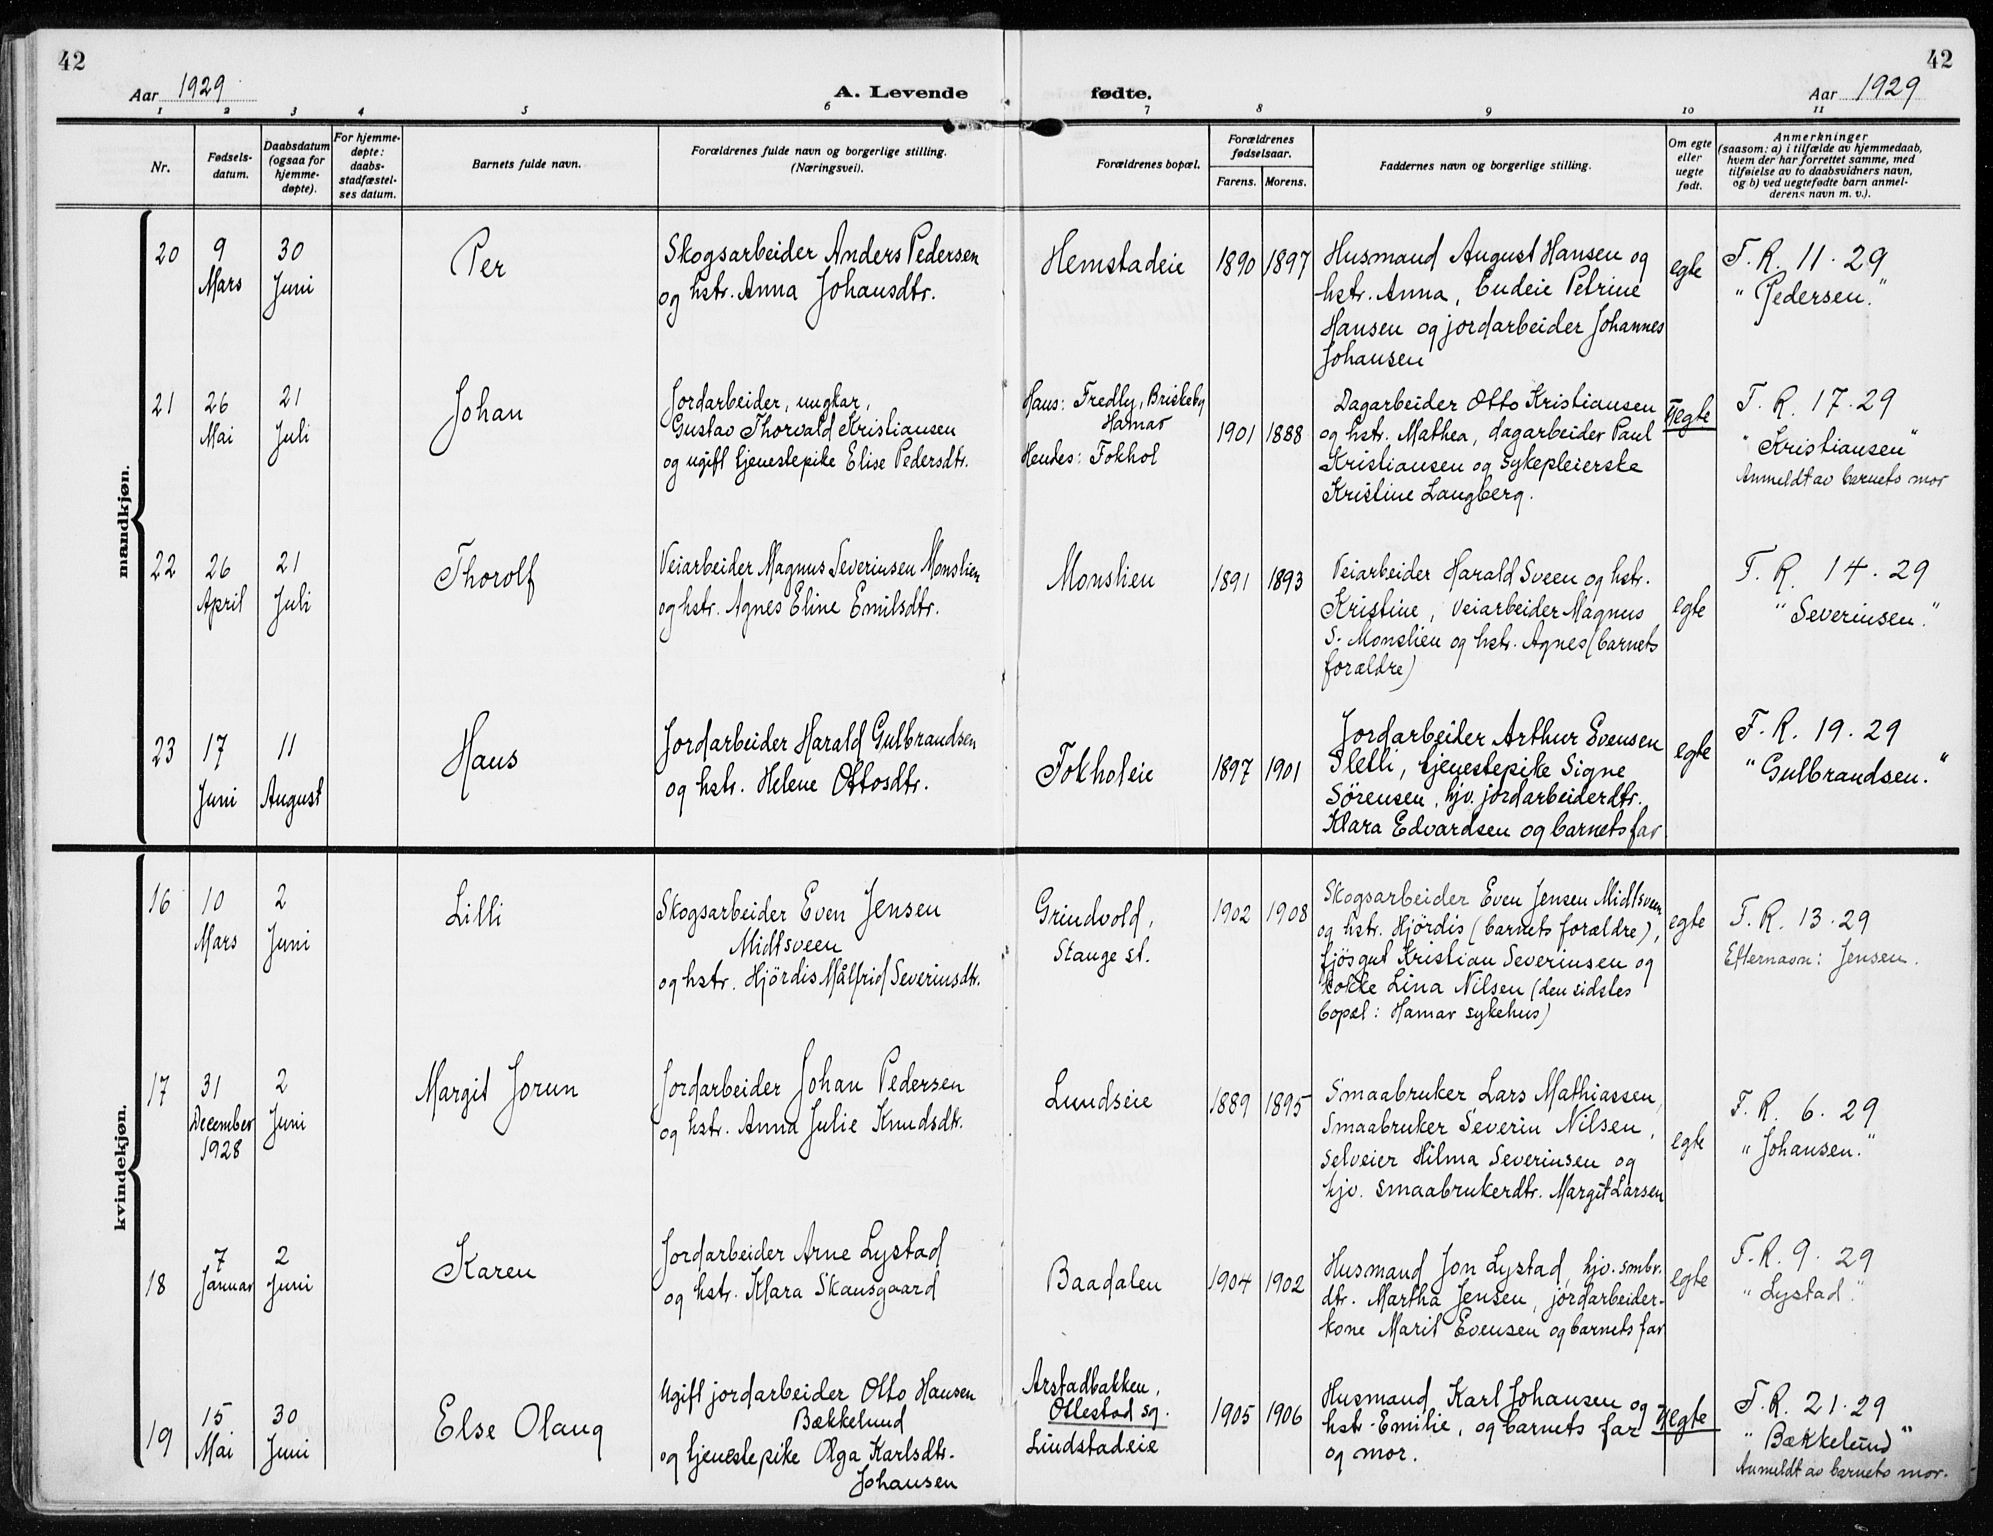 42
42
Aar 1929
A. Levende
fødte.
Aar 1929
1 2 3 4 5 6 7 8 9 10 11
Nr.
Fødsels-
datum.
Daabsdatum
(ogsaa for
hjemme-
døpte).
For hjemme-
døpte:
daabs-
stadfæstel-
ses datum.
Barnets fulde navn.
Forældrenes fulde navn og borgerlige stilling.
(Næringsvei).
Forældrenes bopæl.
Forældrenes
fødselsaar.
Farens. Morens.
Faddernes navn og borgerlige stilling.
Om egte
eller
uegte
født.
Anmerkninger
(saasom: a) i tilfælde av hjemmedaab,
hvem der har forrettet samme, med
tilføielse av to daabsvidners navn,
og b) ved uegtefødte barn anmel-
derens navn m. v.).
mandkjøn.
20
9
Mars
30
Juni
Per
Skogsarbeider Anders Pedersen
og hstr. Anna Johansdtr.
Hemstadeie
1890 1897
Husmand August Hansen og
hstr. Anna, budeie Petrine
Hansen og jordarbeider Johannes
Johansen
egte
F. R. 11 . 29
" Pedersen."
21
26
Mai
21
Juli
Johan
Jordarbeider, ungkar,
Gustav Thorvald Kristiansen
og ugift tjenestepike Elise Pedersdtr.
Hans: Fredly, Briskeby
Hamar
Hendes: Fokhol
1901 1888
Dagarbeider Otto Kristiansen
og hstr. Mathea, dagarbeider Paul
Kristiansen og sykepleierske
Kristine Langberg.
uegte
F. R. 17 . 29
" Kristiansen"
Anmeldt av barnets mor
22
26
April
21
Juli
Thorolf
Veiarbeider Magnus Severinsen Monslien
og hstr. Agnes Eline Emilsdtr.
Monslien
1891 1893
Veiarbeider Harald Sveen og hstr.
Kristine, veiarbeider Magnus
S. Monslien og hstr. Agnes (barnets
forældre)
egte
F. R. 14 . 29
" Severinsen."
23
17
Juni
11
August
Hans
Jordarbeider Harald Gulbrandsen
og hstr. Helene Ottosdtr.
Fokholeie
1897 1901
Jordarbeider Arthur Evensen
Sletli, tjenestepike Signe
Sörensen, hjv. jordarbeiderdtr.
Klara Edvardsen og barnets far
egte
F. R. 19 . 29
" Gulbrandsen."
kvindekjøn.
16
10
Mars
2
Juni
Lilli
Skogsarbeider Even Jensen
Midtsveen
og hstr. Hjördis Målfrid Severinsdtr.
Grindvold,
Stange st.
1902 1908
Skogsarbeider Even Jensen Midtsveen
og hstr. Hjördis (barnets forældre),
fjösgut Kristian Severinsen og
kokke Lina Nilsen (den sidstes
bopæl: Hamar sykehus)
egte
F. R. 13 . 29
Efternavn: Jensen.
17
31
December
1928
2
Juni
Margit Jorun
Jordarbeider Johan Pedersen
og hstr. Anna Julie Knudsdtr.
Lundseie
1889 1895
Smaabruker Lars Mathiassen,
Smaabruker Severin Nilsen,
selveier Hilma Severinsen og
hjv. smaabrukerdtr. Margit Larsen
egte
F. R. 6 . 29
" Johansen."
18
7
Januar
2
Juni
Karen
Jordarbeider Arne Lystad
og hstr. Klara Skansgaard
Baadalen
1904 1902
Husmand Jon Lystad, hjv. smbr.
dtr. Martha Jensen, jordarbeider-
kone Marit Evensen og barnets far
egte
F. R. 9 . 29
" Lystad."
19
15
Mai
30
Juni
Else Olaug
Ugift jordarbeider Otto Hansen
Bækkelund
og tjenestepike Olga Karlsdtr.
Johansen
Arstadbakken,
Ottestad sg.
Lindstadeie
1905 1906
Husmand Karl Johansen og
hstr. Emilie, og barnets far
og mor.
uegte
F. R. 21 . 29
" Bækkelund"
Anmeldt av barnets mor.